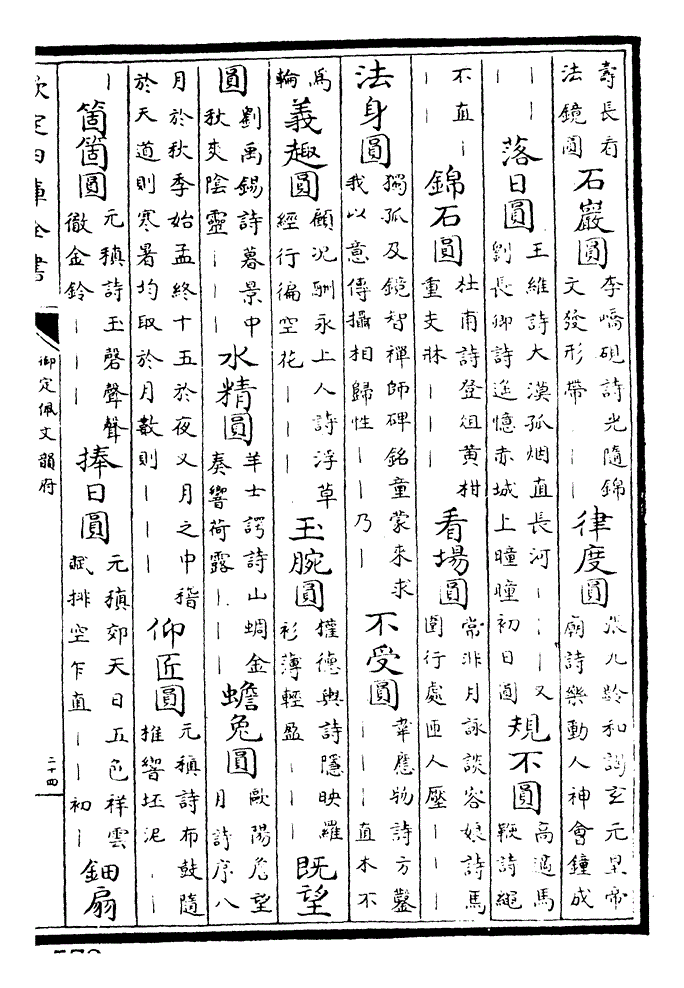 壽長看法鏡圓 石巖圓 李嶠硯詩光隨錦文發形帶｜｜｜ 律度圓 張九齡和謁玄元皇帝廟詩樂動人神會鐘成
｜｜｜ 落日圓 王維詩大漠孤烟直長河｜｜｜又劉長卿詩遙憶赤城上曈曈初日圓 規不圓 高適馬鞭詩繩
不直｜｜｜ 錦石圓 杜甫詩登俎黃柑重支牀｜｜｜ 看場圓 常非月詠談容娘詩馬圍行處匝人壓｜｜｜
法身圓 獨孤及鏡智禪師碑銘童蒙來求我以意傳攝相歸性｜｜乃｜ 不受圓 韋應物詩方鑿｜｜｜直木不
為輪 義趣圓 顧況酬永上人詩浮草經行徧空花｜｜｜ 玉腕圓 權德輿詩隱映羅衫薄輕盈｜｜｜ 既望
圓 劉禹錫詩暮景中秋爽陰靈｜｜｜ 水精圓 羊士諤詩山蜩金奏響荷露｜｜｜ 蟾兔圓 歐陽詹望月詩序八
月於秋季始孟終十五於夜又月之中稽於天道則寒暑均取於月數則｜｜｜ 仰匠圓 元稹詩布鼓隨推響坯泥｜｜
｜ 箇箇圓 元稹詩玉磬聲聲徹金鈴｜｜｜ 捧日圓 元稹郊天日五色祥雲賦排空乍直｜｜初｜ 鈿扇
欽定四庫全書
御定佩文韻府
二十四